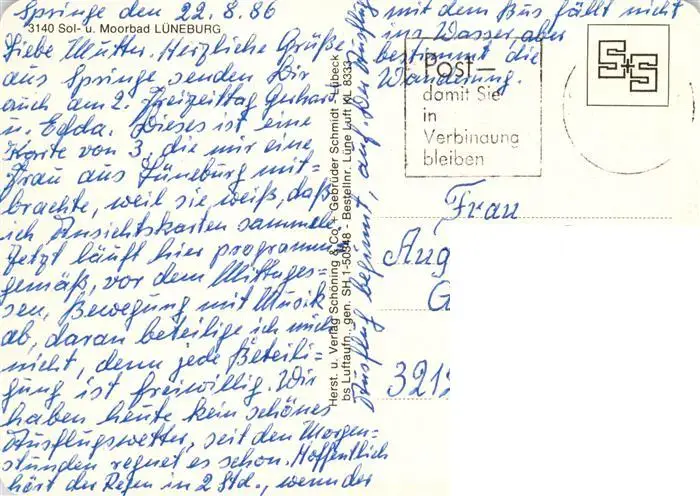 Springe den 22.8.86
3140 Sol- u. Moorbad LÜNEBURG
Liebe Mutter. Herzliche Grüße
aus Springe senden Dir
auch am 2. Freizeittag Gerhard
u. Edda. Dieses ist eine
Karte von 3, die mir eine
Frau aus Lüneburg mit-
brachte, weil sie weiß, daß
ich Ansichtskarten sammele.
Jetzt läuft hier programm-
gemäß, vor dem Mittages-
sen, Bewegung mit Musik
ab, daran beteilige ich mich
nicht, denn jede Beteili-
gung ist freiwillig. Wir
haben heute kein schönes
Ausflugswetter, seit den Morgen-
stunden regnet es schon. Hoffentlich
hört der Regen in 2 Std., wenn der
Ausflug beginnt, auf. Der Ausflug
mit dem Bus fällt nicht
ins Wasser, aber
bestimmt die
Wanderung.
Herst. u. Verlag Schöning & Co. + Gebrüder Schmidt - Lübeck
bs Luftaufn. gen. SH 1-50348 - Bestellnr. Lüne Luft KL 8333
Post—
damit Sie
in
Verbindung
bleiben
S+S
Frau
Aug
G
321